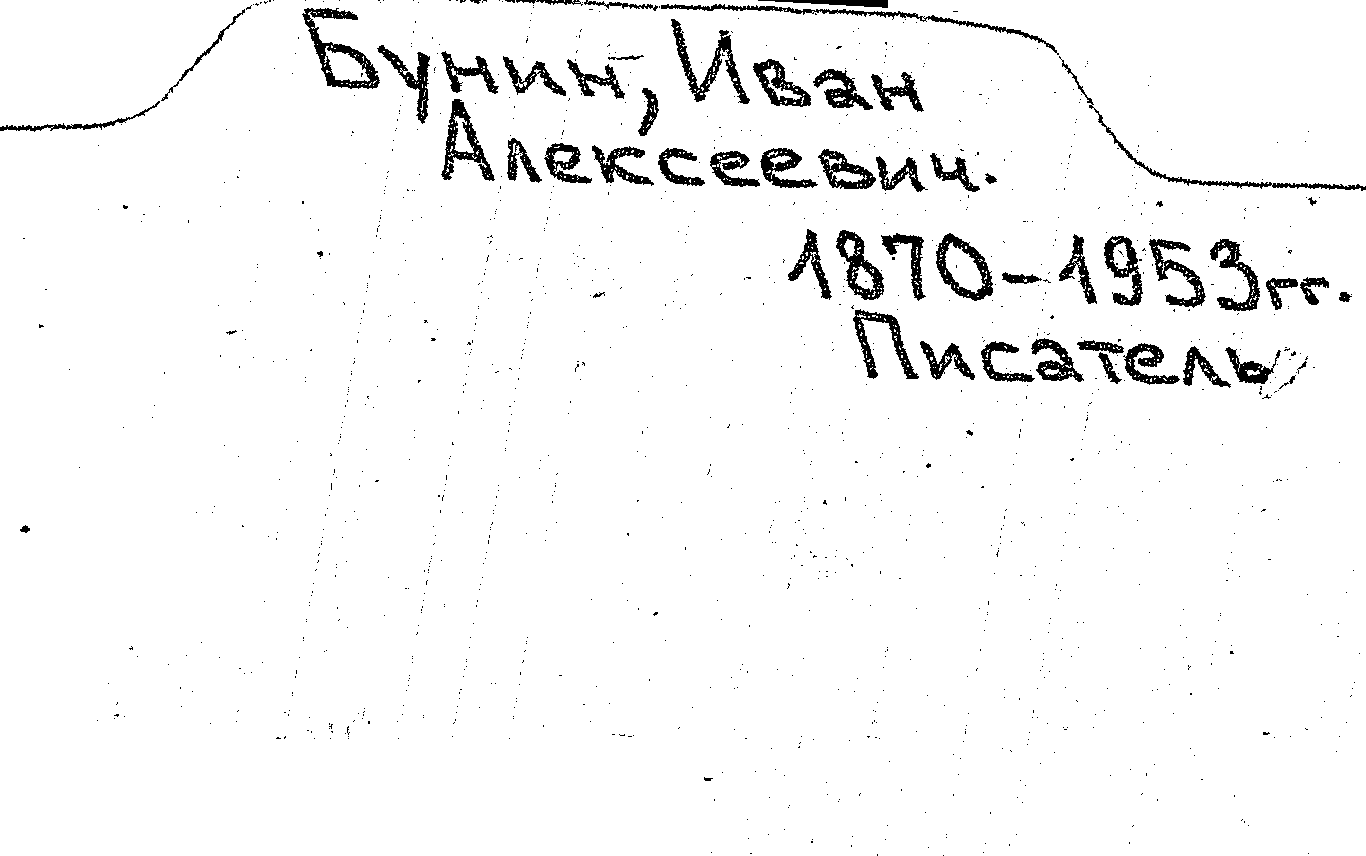 Бунин, Иван
Алексеевич.
1870-1953гг.
Писатель